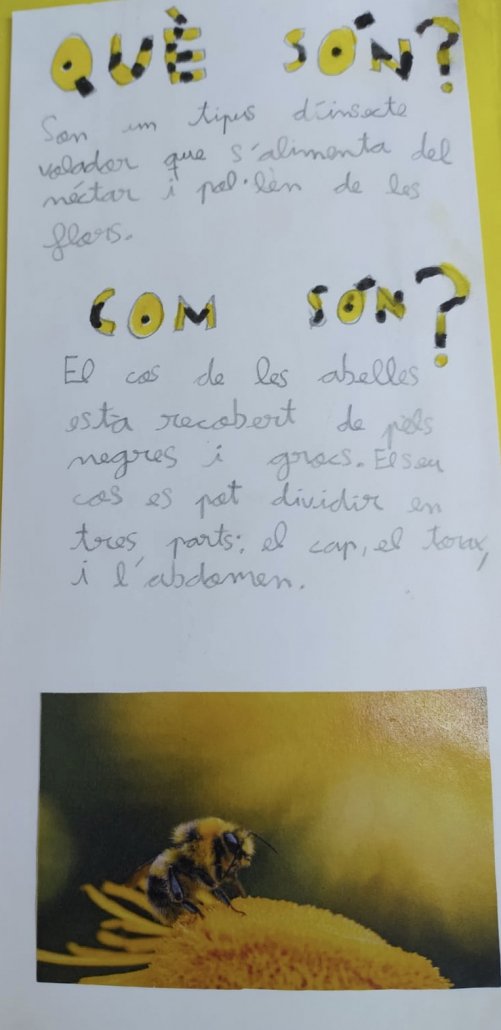 QUÈ SÓN?
Son un tipus d'insecte
volador que s'alimenta del
néctar i pol·lèn de les
flors.
COM SÓN?
El cos de les abelles
està recobert de pèls
negres i grocs. El seu
cos es pot dividir en
tres parts: el cap, el torax,
i l'abdomen.